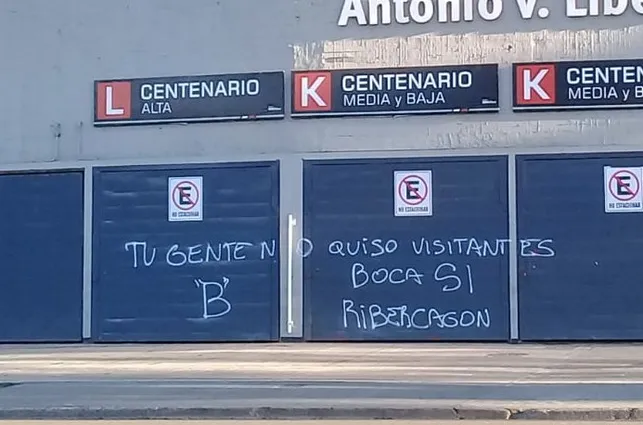 Antonio V. Libe
L CENTENARIO
ALTA
K CENTENARIO
MEDIA y BAJA
K CENTEN
MEDIA y B
E
NO ESTACIONAR
E
NO ESTACIONAR
E
NO ESTACIONAR
TU GENTE NO QUISO VISITANTES
"B" BOCA SI
RIBERCAGON